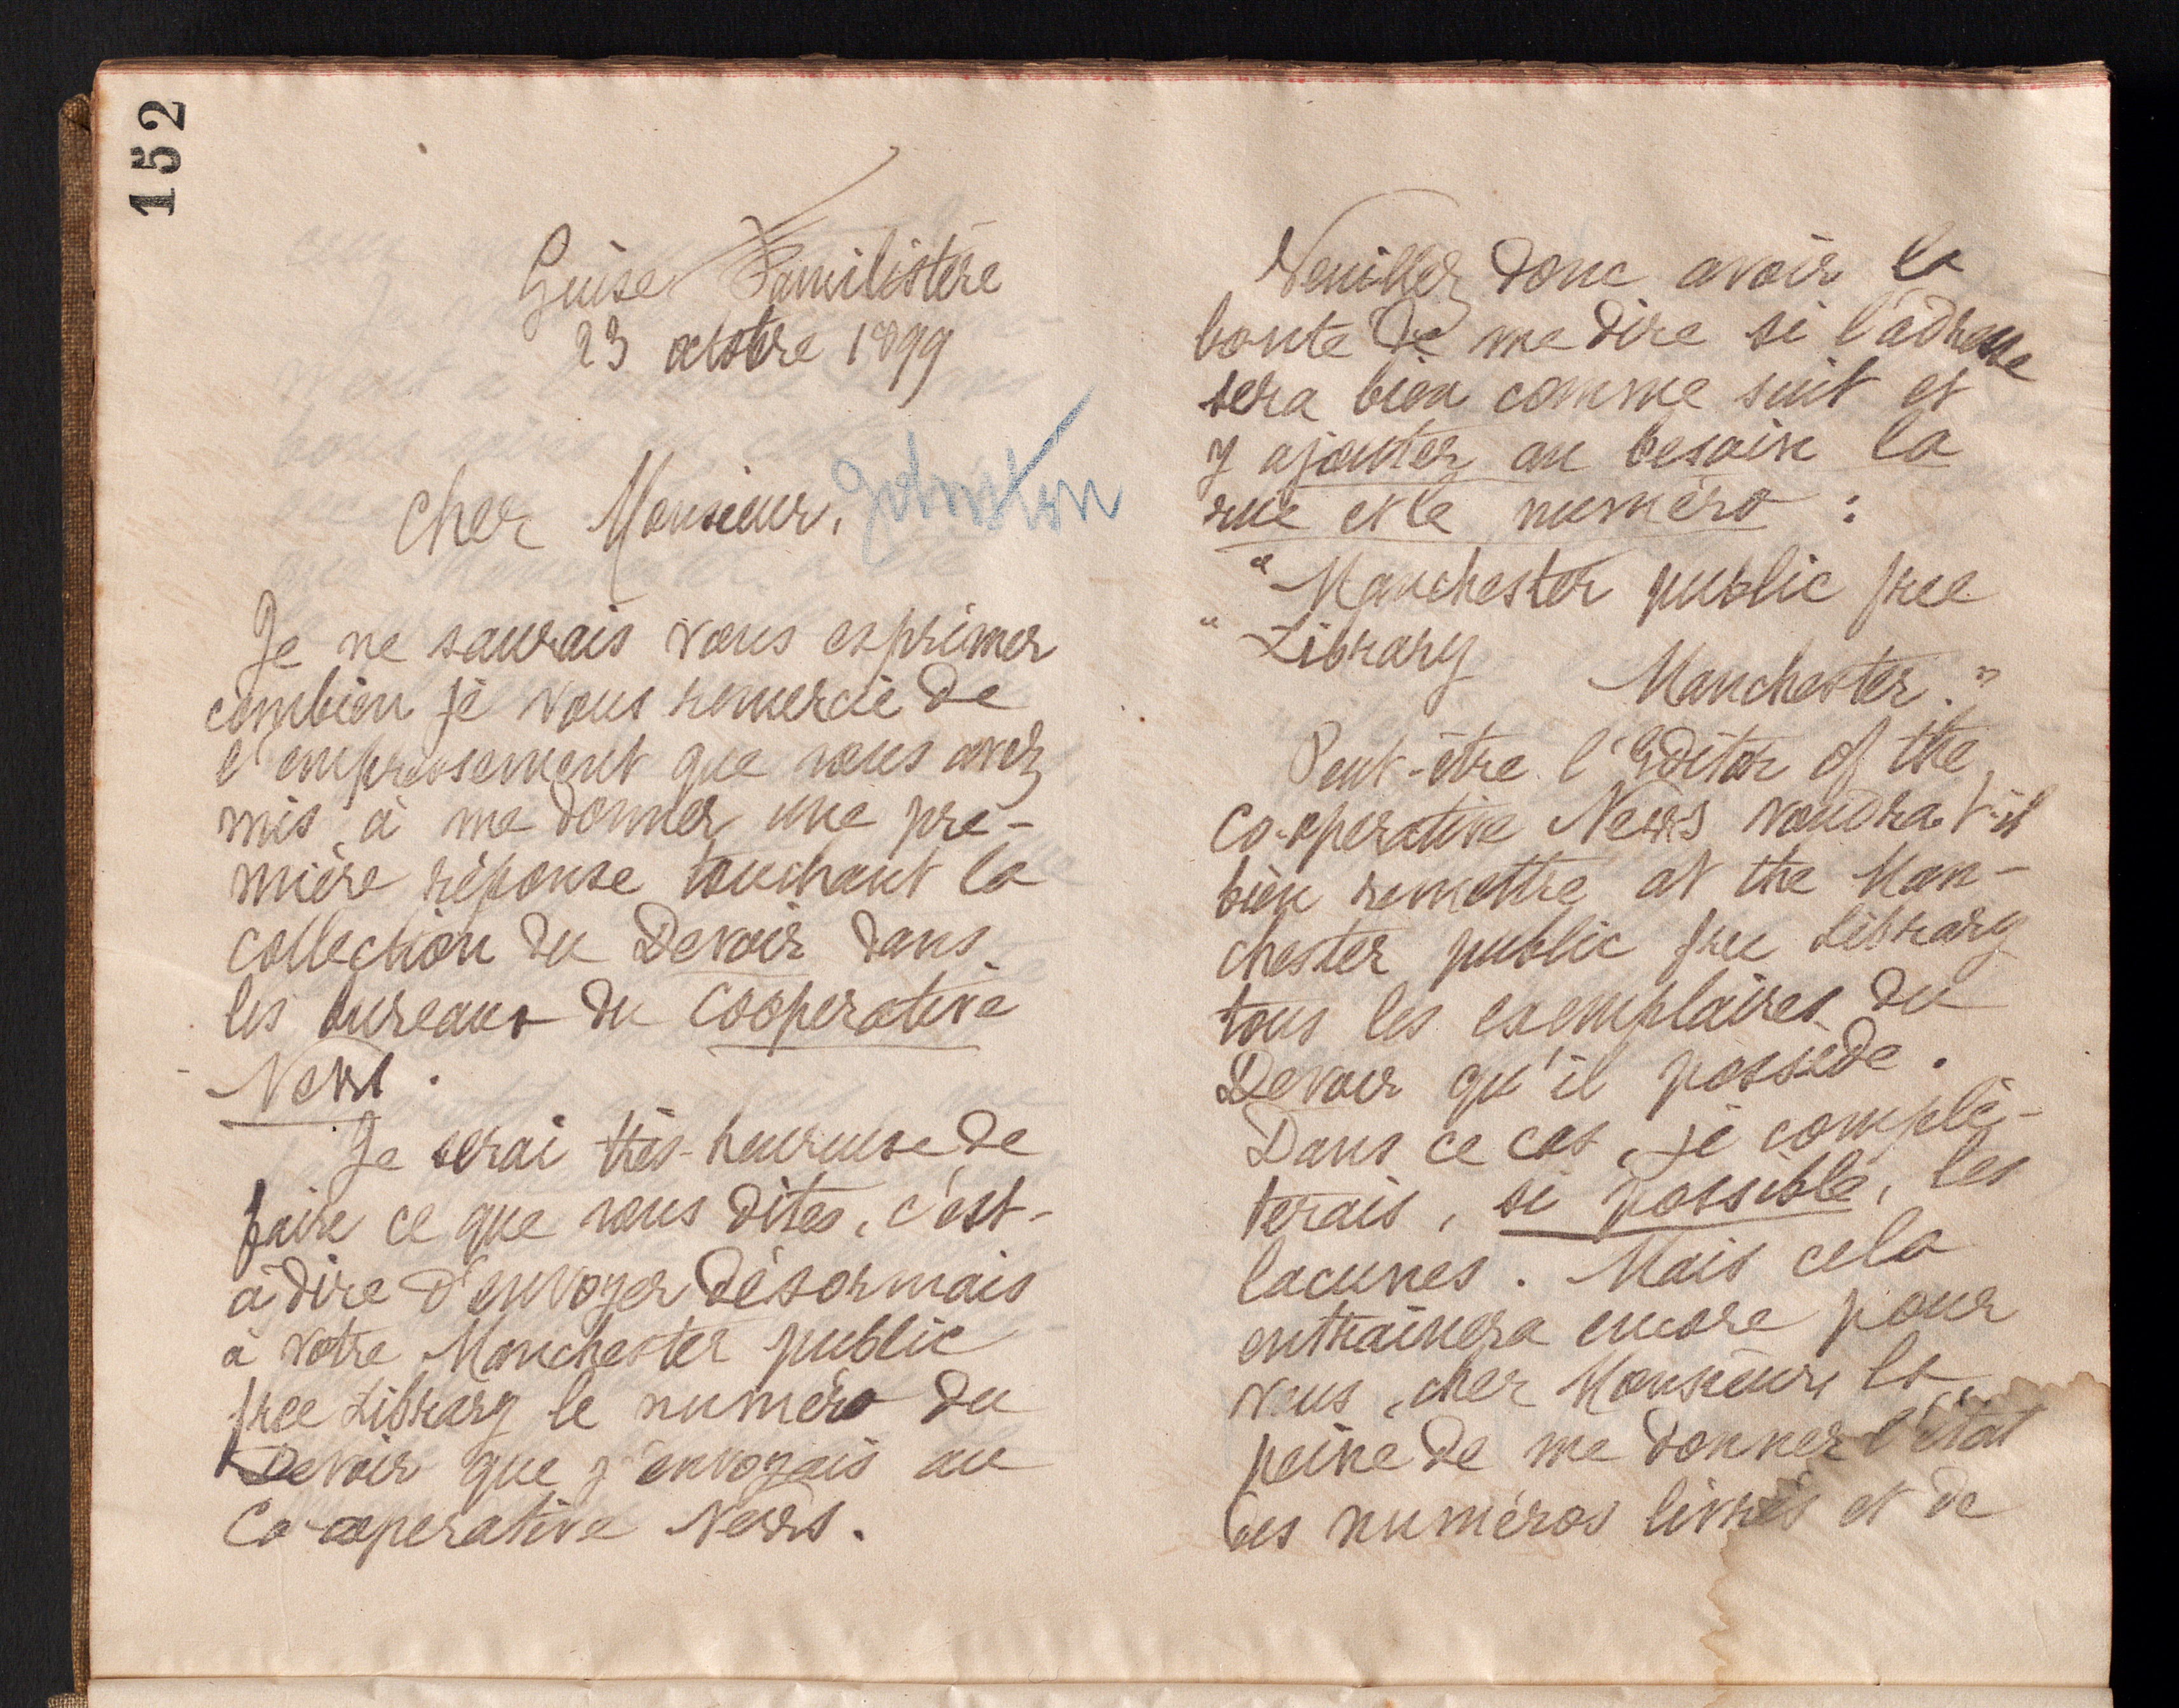 152
Guise Familistère
23 octobre 1899
Cher Monsieur, Johnston
Je ne saurais vous exprimer
combien je vous remercie de
l'empressement que vous avez
mis à me donner une pre-
mière réponse touchant la
collection du Devoir dans
les bureaux du Cooperative
News.
Je serai très-heureuse de
faire ce que vous dites, c'est-
à dire d'envoyer désormais
à votre Manchester public
free Library le numéro du
Devoir que j'envoyais au
Co-operative News.
Veuillez donc avoir la
bonté de me dire si l'adresse
sera bien comme suit et
y ajouter au besoin la
rue et le numéro :
"Manchester public free
" Library
Manchester."
Peut-être l'Editor of the
Co-operative News voudra t-il
bien remettre at the Man-
chester public free Library
tous les exemplaires du
Devoir qu'il possède.
Dans ce cas, je complè-
terais, si possible, les
lacunes. Mais cela
entraînera encore pour
vous, cher Monsieur, la
peine de me donner l'état
des numéros livrés et de